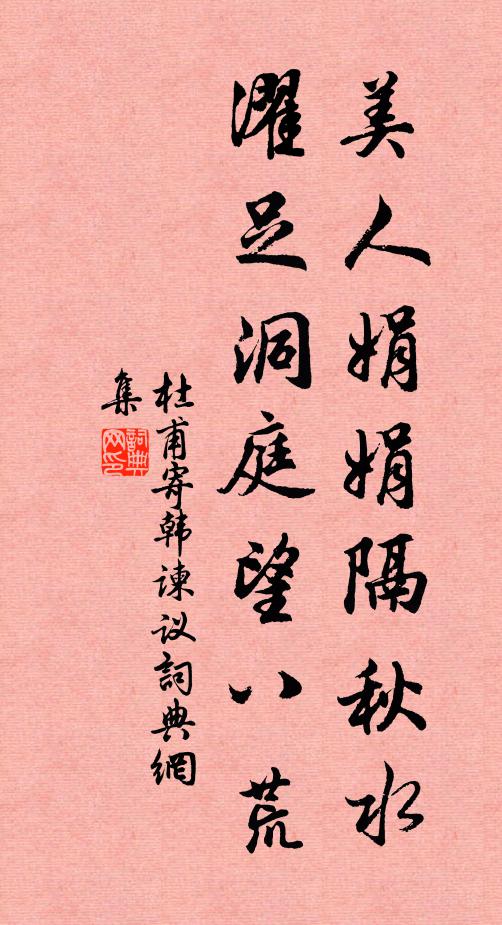 美人娟娟隔秋水
濯足洞庭望八荒
杜甫寄韩谏议詞典網
集
詞典网印